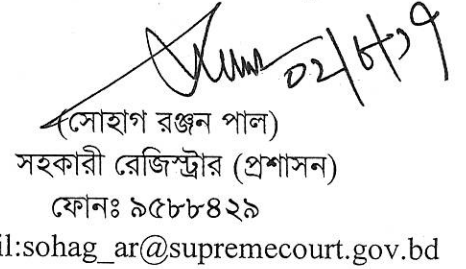 ০২/৮/১৭
(সোহাগ রঞ্জন পাল)
সহকারী রেজিস্ট্রার (প্রশাসন)
ফোনঃ ৯৫৮৮৪২৯
il:sohag_ar@supremecourt.gov.bd